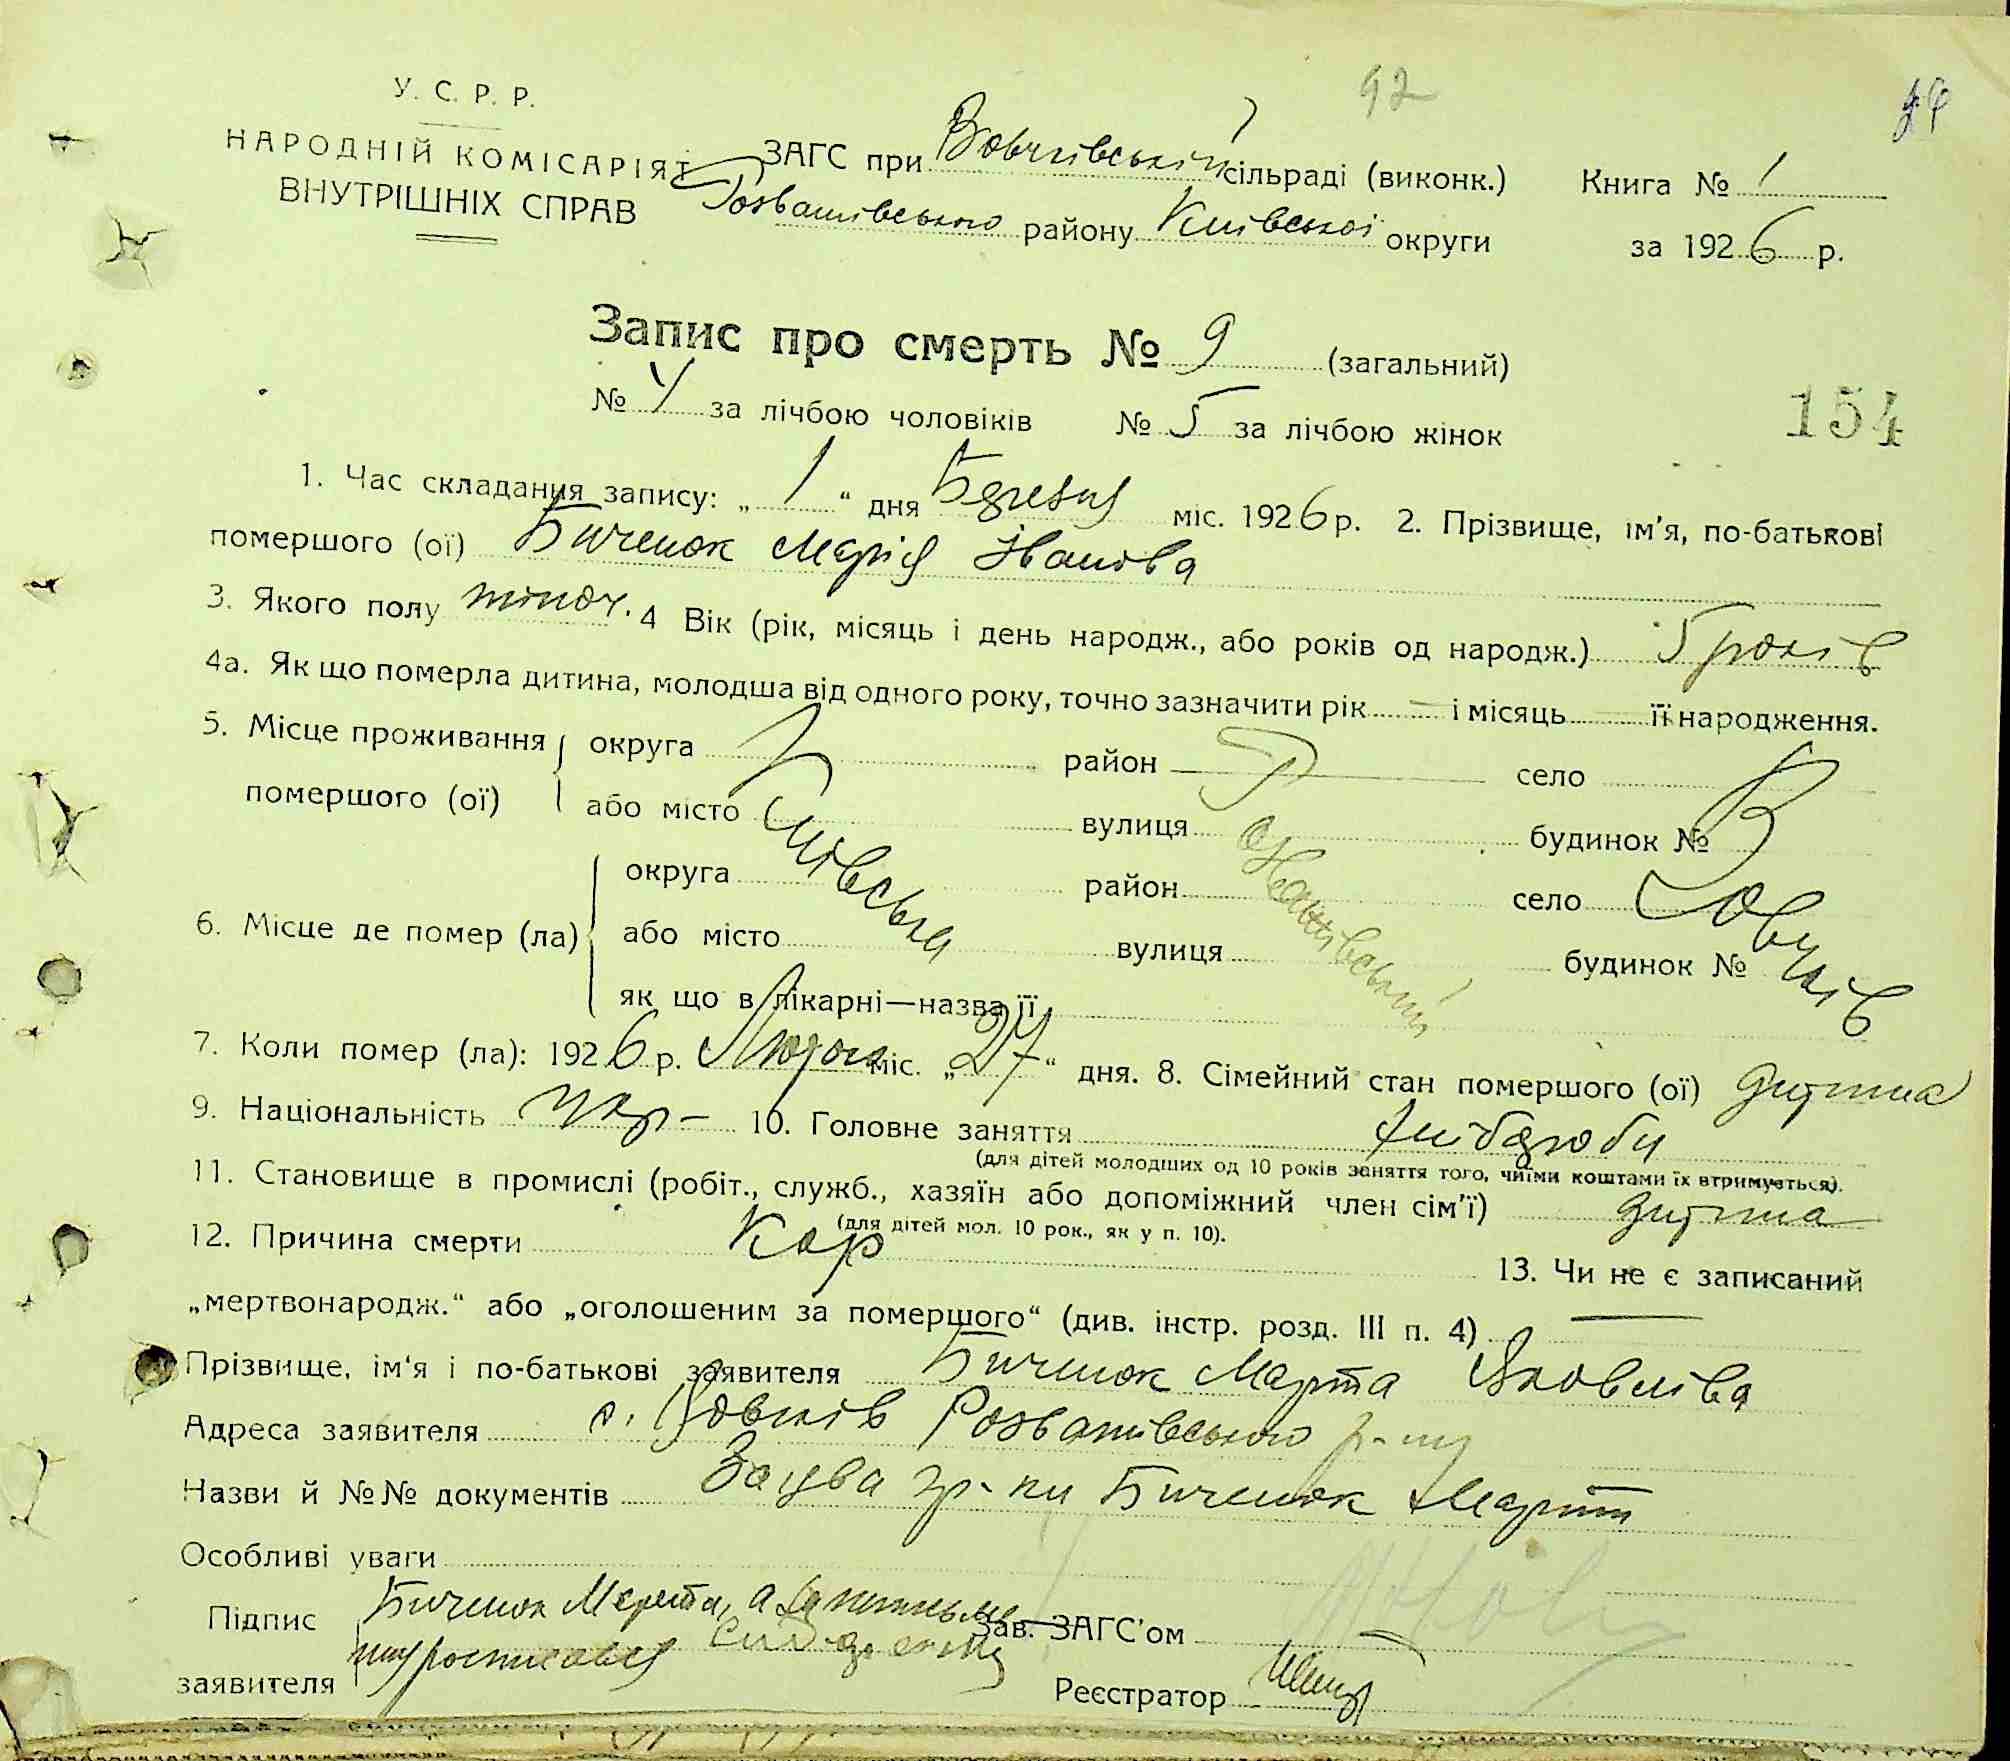 92
У. С. Р. Р.
НАРОДНІЙ КОМІСАРІЯТ
ВНУТРІШНІХ СПРАВ
ЗАГС при Вовчківській сільраді (виконк.) Книга № 1
Розважівського району Київської округи за 1926 р.
Запис про смерть № 9 (загальний)
№ 4 за лічбою чоловіків № 5 за лічбою жінок
154
1. Час складання запису: „ 1 “ дня Березня міс. 1926 р. 2. Прізвище, ім'я, по-батькові
помершого (ої) Биченок Марія Іванова
3. Якого полу жіноч. 4 Вік (рік, місяць і день народж., або років од народж.) 5 років
4а. Як що померла дитина, молодша від одного року, точно зазначити рік — і місяць — її народження.
5. Місце проживання помершого (ої) округа Київська район Розважівський село Вовчків
або місто вулиця будинок №
6. Місце де помер (ла) округа район село
або місто вулиця будинок №
як що в лікарні—назва її
7. Коли помер (ла): 1926 р. Лютого міс. „27“ дня. 8. Сімейний стан помершого (ої) дитина
9. Національність укр- 10. Головне заняття хліборобн
(для дітей молодших од 10 років заняття того, чиїми коштами їх втримується).
11. Становище в промислі (робіт., служб., хазяїн або допоміжний член сім'ї) дитина
(для дітей мол. 10 рок., як у п. 10).
12. Причина смерти Кор 13. Чи не є записаний
„мертвонародж.“ або „оголошеним за помершого“ (див. інстр. розд. III п. 4) —
Прізвище, ім'я і по-батькові заявителя Биченок Марта Яковліва
Адреса заявителя с. Вовчків Розважівського р-ну
Назви й №№ документів Заява гр-ки Биченок Марти
Особливі уваги
Підпис заявителя Биченок Марта, а
Зав. ЗАГС'ом
Реєстратор